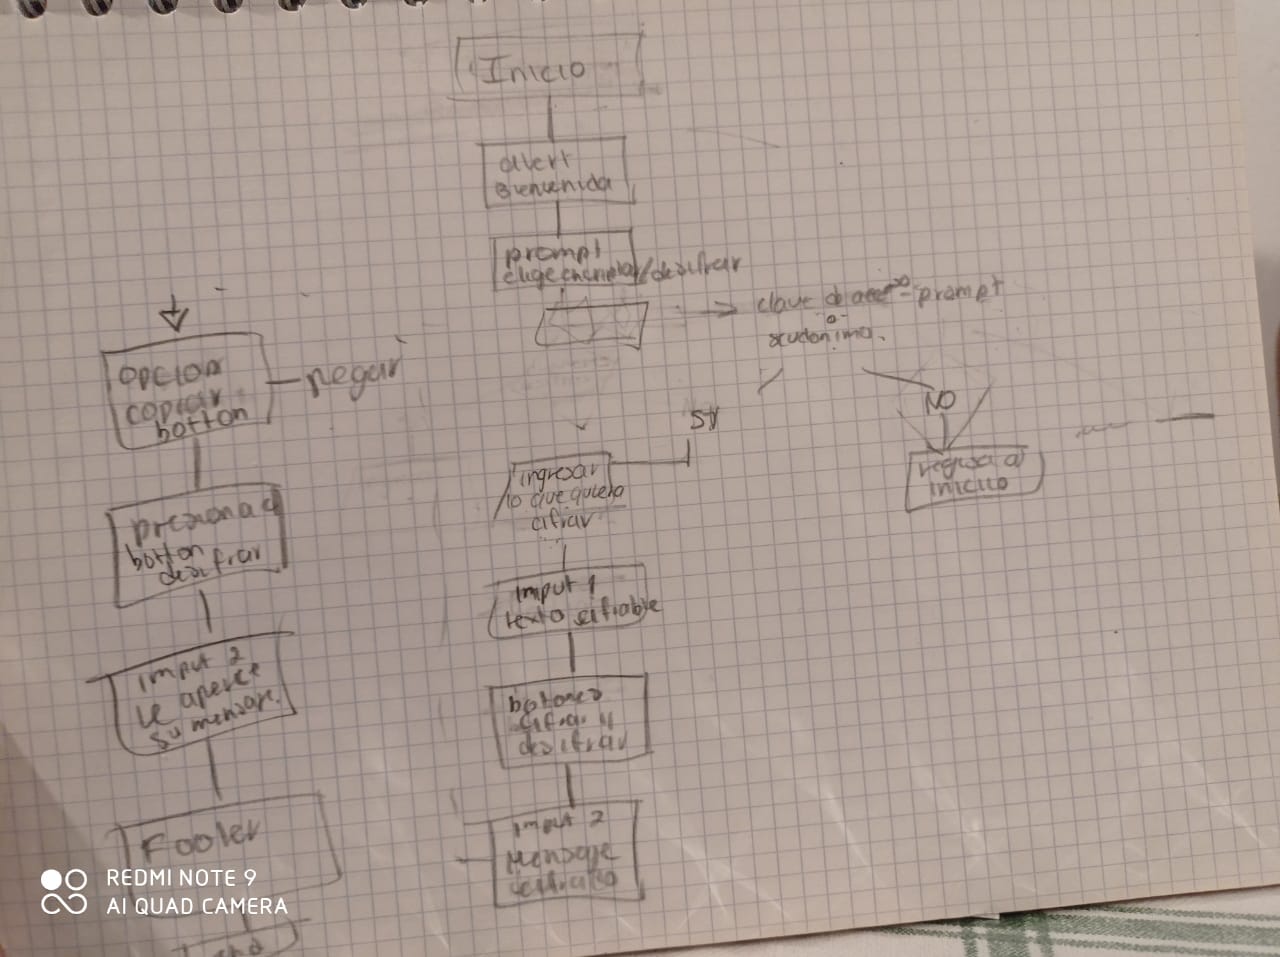 Inicio
alert
Bienvenida
prompt
elige encriptar/descifrar
clave de acceso - prompt
o
seudonimo.
SI
NO
regresa al
inicio
ingresar
lo que quiera
cifrar
imput 1
texto cifrable
botones
cifrar y
descifrar
imput 2
Mensaje
cifrado
opcion
copiar
botton
pegar
presiona el
botton
descifrar
imput 2
le aparece
su mensaje.
Footer
REDMI NOTE 9
AI QUAD CAMERA